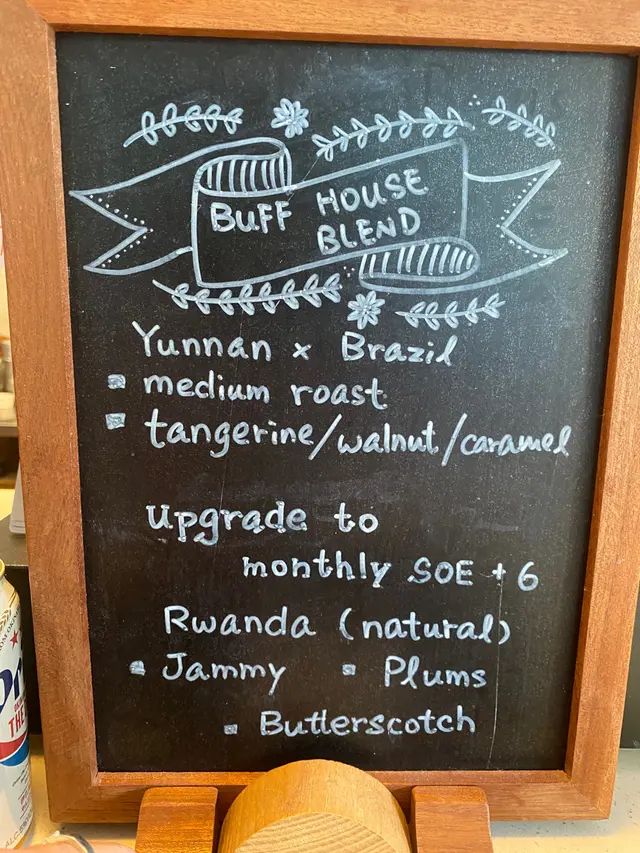 BUFF HOUSE
BLEND
Yunnan x Brazil
▪ medium roast
▪ tangerine/walnut/caramel
Upgrade to
monthly SOE + 6
Rwanda (natural)
▪ Jammy ▪ Plums
▪ Butterscotch